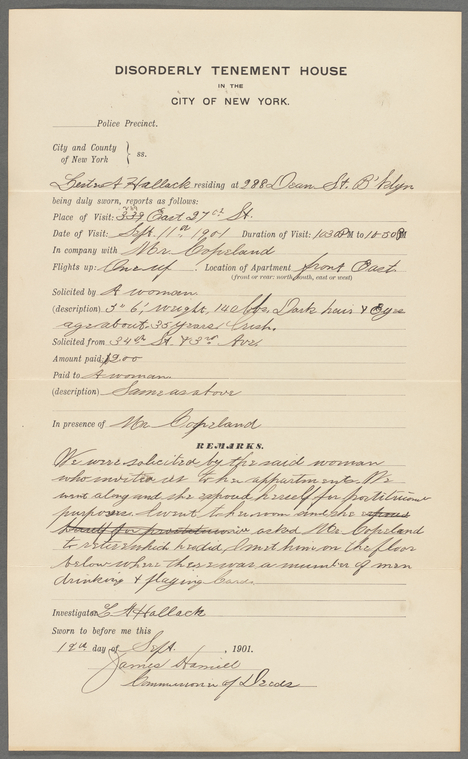 DISORDERLY TENEMENT HOUSE
IN THE
CITY OF NEW YORK.
Police Precinct.
City and County
of New York } ss.
Lester A Hallack residing at 288 Dean St. B'klyn
being duly sworn, reports as follows:
Place of Visit: 339 East 27th St.
Date of Visit: Sept. 11th 1901 Duration of Visit: 10:30 PM to 10:50 PM
In company with Mr Copeland
Flights up: One up : Location of Apartment front East
(front or rear: north, south, east or west)
Solicited by A woman
(description) 5" 6', weight, 140 lbs. Dark hair & Eyes
age about 35 years Irish.
Solicited from 34th St. & 3rd Ave
Amount paid: $2.00
Paid to A woman
(description) Same as above
In presence of Mr Copeland
REMARKS.
We were solicited by the said woman
who invited us to her appartments. We
went along and she exposed herself for prostitution
purposes. I went to her room and she
herself for prostitution asked Mr Copeland
to retire which he did, I met him on the floor
below where there was a number of men
drinking & playing Cards
Investigator L A Hallack
Sworn to before me this
12th day of Sept. , 1901.
James Hamill
Commissioner of Deeds